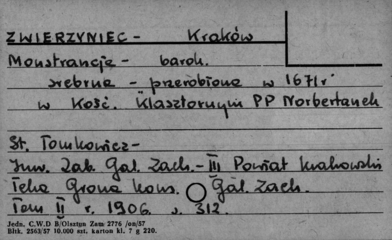 ZWIERZYNIEC - Kraków
Monstrancja - barok.
srebrna - przerobiona w 1671 r
w Kość. Klasztornym PP Norbertanek
St. Tomkowicz -
Inw. Zab. Gal. Zach. - III Powiat krakowski
Teka Grona Kons. Gal. Zach.
Tom II r. 1906. s. 312.
Jedn. C.W.D B/Olsztyn Zam 2776 /on/57
Bltk. 2563/57 10.000 szt. karton kl. 7 g 220.